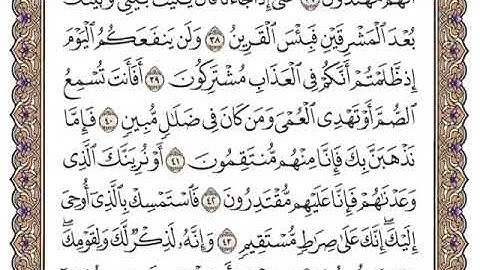 أَنَّهُم مُّهْتَدُونَ ٣٧ حَتَّىٰٓ إِذَا جَآءَنَا قَالَ يَٰلَيْتَ بَيْنِي وَبَيْنَكَ
بُعْدَ ٱلْمَشْرِقَيْنِ فَبِئْسَ ٱلْقَرِينُ ٣٨ وَلَن يَنفَعَكُمُ ٱلْيَوْمَ
إِذ ظَّلَمْتُمْ أَنَّكُمْ فِي ٱلْعَذَابِ مُشْتَرِكُونَ ٣٩ أَفَأَنتَ تُسْمِعُ
ٱلصُّمَّ أَوْ تَهْدِي ٱلْعُمْيَ وَمَن كَانَ فِي ضَلَٰلٍ مُّبِينٍ ٤٠ فَإِمَّا
نَذْهَبَنَّ بِكَ فَإِنَّا مِنْهُم مُّنتَقِمُونَ ٤١ أَوْ نُرِيَنَّكَ ٱلَّذِي
وَعَدْنَٰهُمْ فَإِنَّا عَلَيْهِم مُّقْتَدِرُونَ ٤٢ فَٱسْتَمْسِكْ بِٱلَّذِيٓ أُوحِيَ
إِلَيْكَ ۖ إِنَّكَ عَلَىٰ صِرَٰطٍ مُّسْتَقِيمٍ ٤٣ وَإِنَّهُۥ لَذِكْرٌ لَّكَ وَلِقَوْمِكَ ۖ